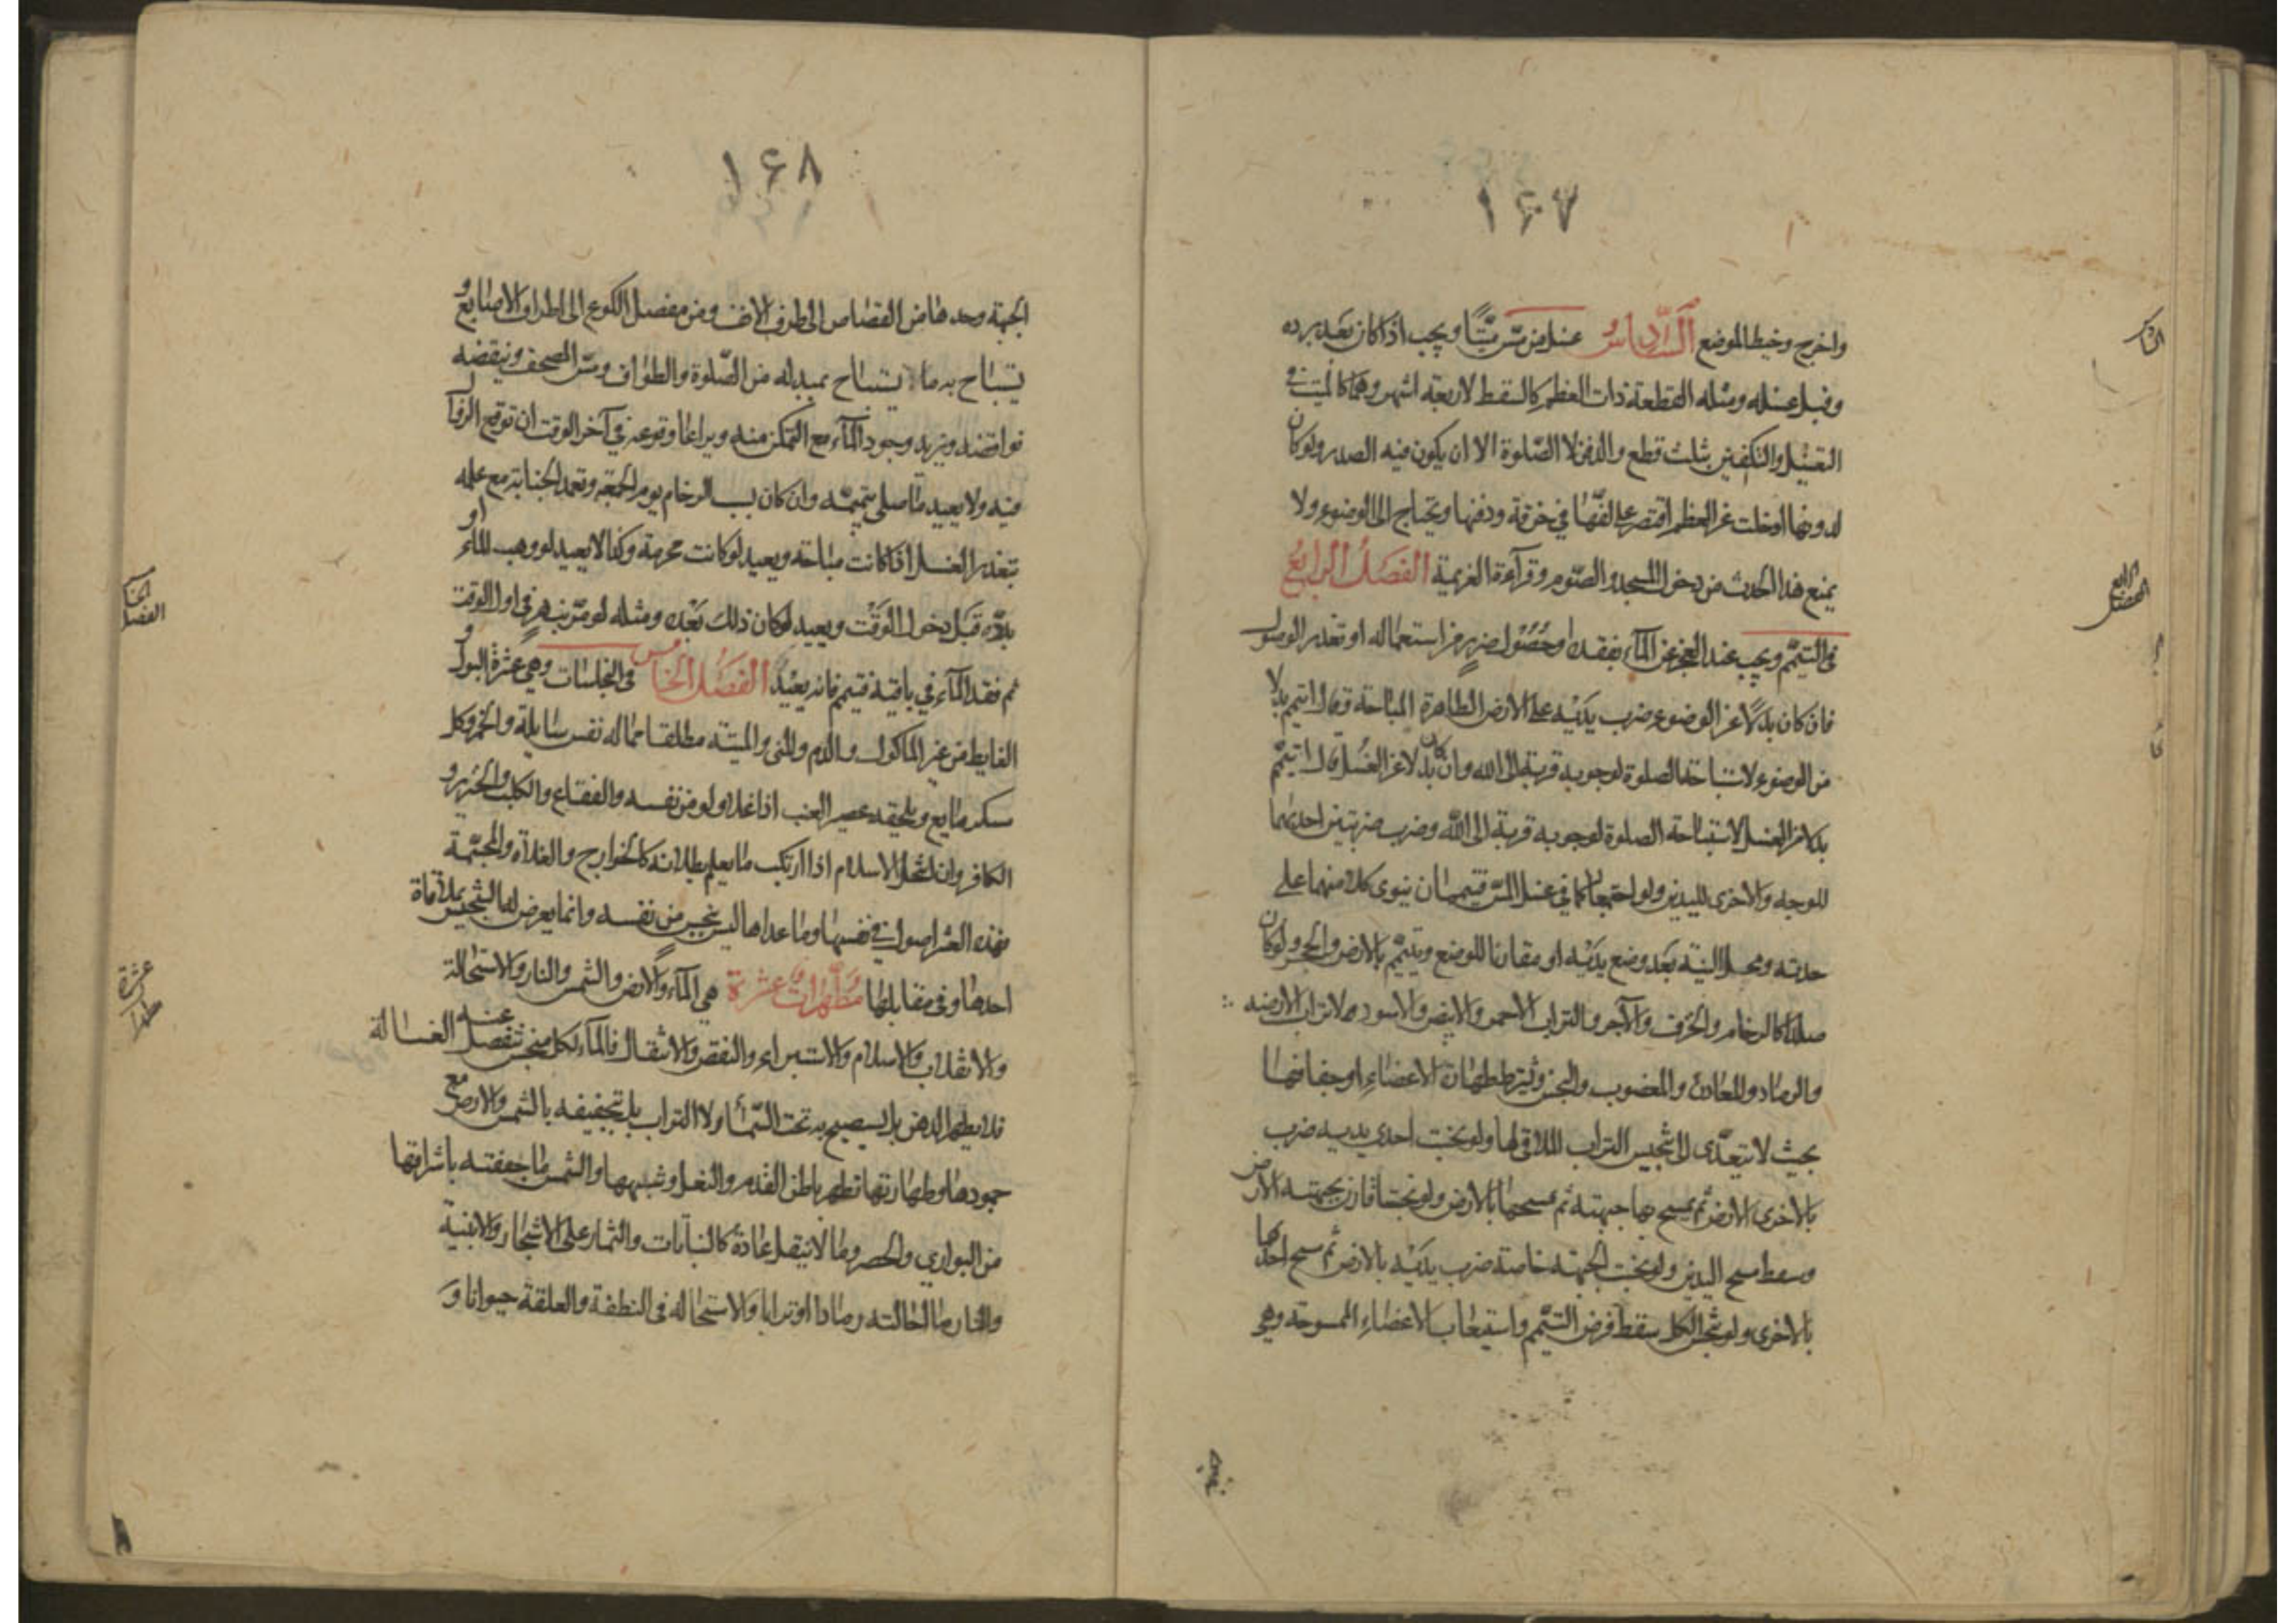 ١۶٧
واخرج وخيط الموضع السادس غسل من مس ميتا ويجب اذا كان بعد برده
وقبل غسله ومثله القطعة ذات العظم كالسقط لاربعة اشهر وهما كالميت في
التغسيل والتكفين بثلث قطع والدفن لا الصلوة الا ان يكون فيه الصدر ولو كان
لدونها او خلت عن العظم اقتصر على لفها في خرقة ودفنها ويحتاج الى الوضوء ولا
يمنع هذا الحدث من دخول المسجد والصوم وقرآءة العزيمة الفصل الرابع
في التيمم ويجب عند العجز عن المآء بفقده او حصول ضرر من استعماله او تعذر الوصول
فان كان بدلا عن الوضوء ضرب يديه على الارض الطاهرة المباحة وقال اتيمم بدلا
من الوضوء لاستباحة الصلوة لوجوبه قربة الى الله وان كان بدلا عن الغسل قال اتيمم
بدلا من الغسل لاستباحة الصلوة لوجوبه قربة الى الله وضرب ضربتين احديهما
للوجه والاخرى لليدين ولو اجتمعا كما في غسل المس تيمم ان ينوى كلا منهما على
حدته ومحل النية بعد وضع يديه او مقارنا للوضع ويتيمم بالارض والحجر ولو كان
صلدا كالرخام والخزف والآجر والتراب الاحمر والابيض والاسود لا تراب الارضه
والرماد والمعادن والمغصوب والنجس ويشترط طهارة الاعضاء او جفافها
بحيث لا يتعدى الى تنجيس التراب الملاقى لها ولو نجست احدى يديه ضرب
بالاخرى الارض ثم يمسح بها جبهته ثم مسحها بالارض ولو نجستا قارن بجبهته الارض
وسقط مسح اليدين ولو نجست الجبهة خاصة ضرب يديه بالارض ثم مسح احدهما
بالاخرى ولو نجس الكل سقط فرض التيمم واستيعاب الاعضاء الممسوحة وهي
الرابع
الفصل
١۶٨
الجبهة وحدها من القصاص الى طرف الانف ومن مفصل الكوع الى اطراف الاصابع و
يستباح به ما يستباح بمبدله من الصلوة والطواف ومس المصحف وينقضه
نواقضه ويزيد وجود المآء مع التمكن منه ويراعا وقوعه في آخر الوقت ان توقع الزوال
فيه ولا يعيد ما صلى بتيممه وان كان بسبب الزحام يوم الجمعة وتعمد الجنابة مع علمه
بتعذر الغسل اذا كانت مباحة ويعيد لو كانت محرمة وكذا لا يعيد لو وهب المآء او
بذله قبل دخول الوقت ويعيد لو كان ذلك بعده ومثله لو مر بنهر في اول الوقت
ثم فقد المآء في باقيه فتيمم فانه يعيد الفصل الخامس في النجاسات وهي عشرة البول و
الغايط من غير الماكول والدم والمنى والميتة مطلقا مما له نفس سايلة والخمر وكل
مسكر مايع ويلحقه عصير العنب اذا غلا ولو من نفسه والفقاع والكلب والخنزير و
الكافر وان انتحل الاسلام اذا ارتكب ما يعلم بطلانه كالخوارج والغلاة والمجسمة
فهذه العشر اصول في نفسها وما عداها ليس بنجس من نفسه وانما يعرض لها التنجيس بملاقاة
احدها وفي مقابلها مطهرات عشرة هي المآء والارض والشمس والنار والاستحالة
والانقلاب والاسلام والاستبراء والنقص والانتقال فالمآء لكل متنجس تنفصل عنه الغسالة
فلا يطهر الدهن بل يستصبح به تحت السمآء ولا التراب بل بتجفيفه بالشمس والارض مع
جمودها وطهارتها تطهر باطن القدم والنعل وشبهها والشمس ما جففته باشراقها
من البوارى والحصر وما لا ينقل عادة كالنباتات والثمار على الاشجار والابنية
والنار ما احالته رمادا او ترابا والاستحالة في النطفة والعلقة حيوانا و
الفصل
عشرة